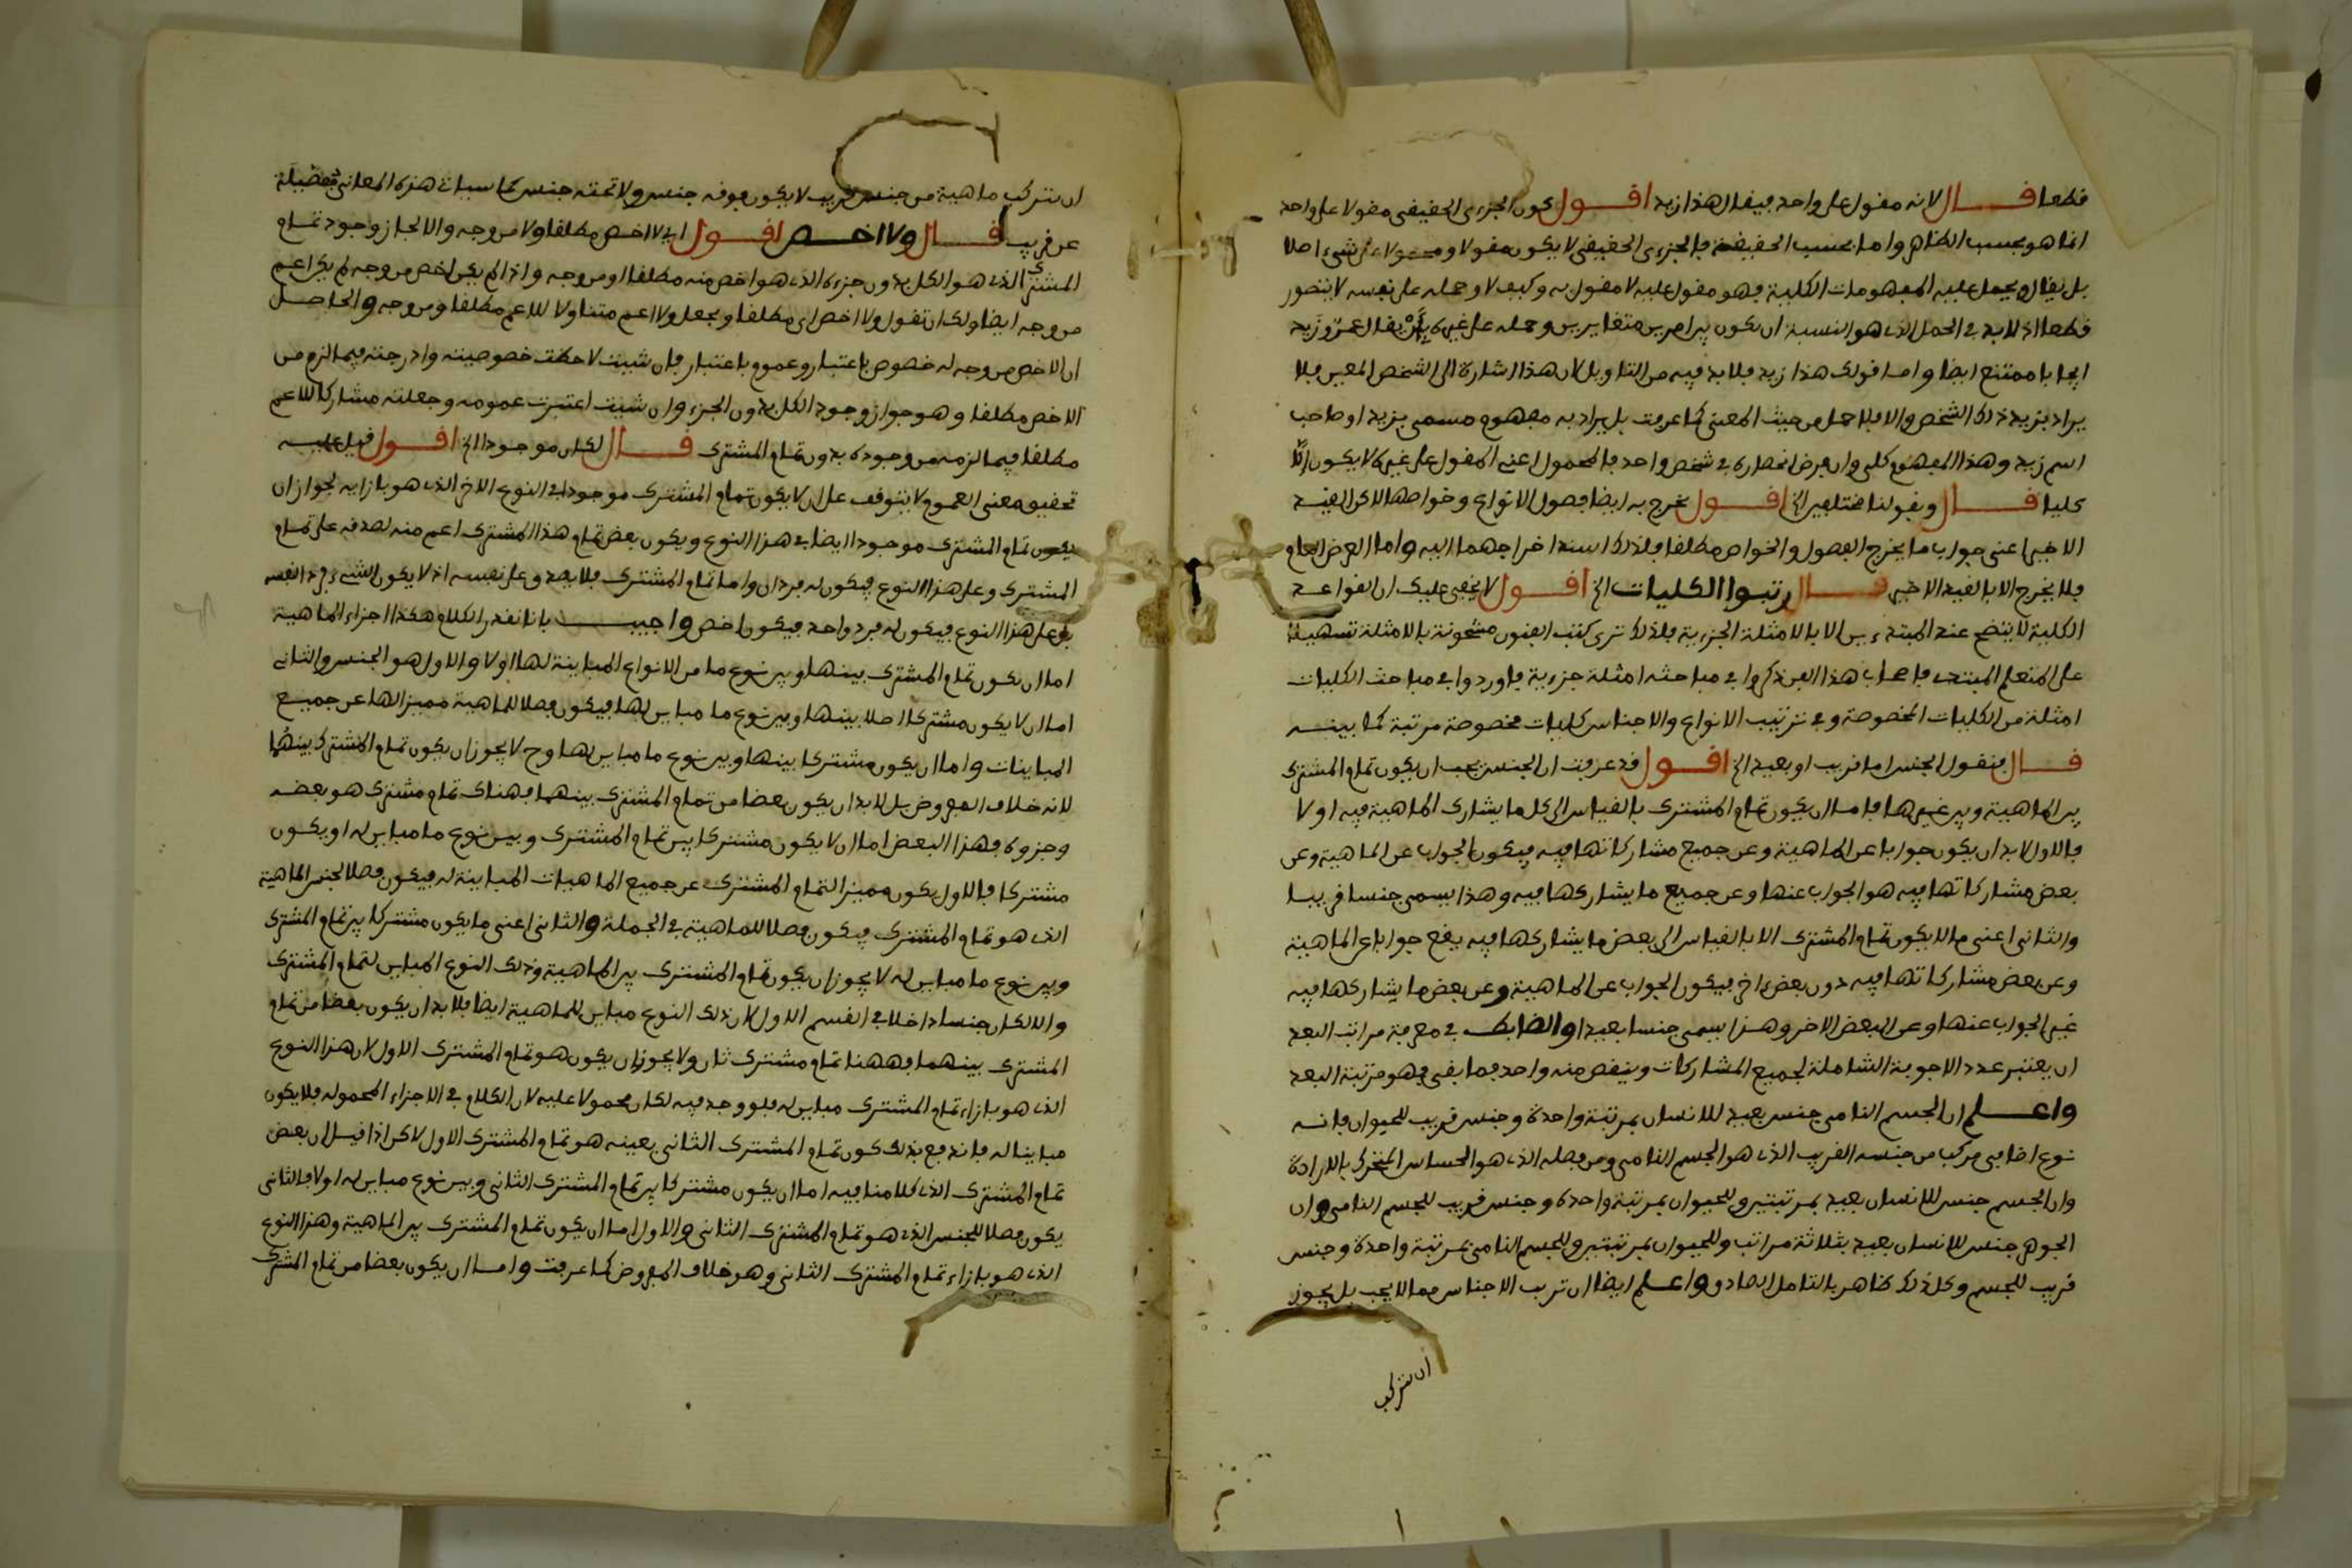 قطعا قال لانه مقول على واحد فيقال هذا زيد اقول كون الجزءى الحقيقى مقولا على واحد
انما هو بحسب الظاهر واما بحسب الحقيقة فالجزءى الحقيقى لا يكون مقولا ومحمولا على شىء اصلا
بل يقال ويحمل عليه المفهومات الكلية فهو مقول عليه لا مقول به وكيف لا وحمله على نفسه لا يتصور
قطعا اذ لا بد فى الحمل الذى هو النسبة ان يكون بين امرين متغايرين وحمله على غيره بان يقال عمرو زيد
ايجابا ممتنع ايضا واما قولك هذا زيد فلا بد فيه من التاويل لان هذا اشارة الى الشخص المعين فلا
يراد بزيد ذلك الشخص والا فلا حمل من حيث المعنى كما عرفت بل يراد به مفهوم مسمى بزيد او صاحب
اسم زيد وهذا المفهوم كلى وان فرض انحصاره فى شخص واحد فالمحمول اعنى المقول على غيره لا يكون الا
كليا قال وبقولنا مختلفين الخ اقول يخرج به ايضا فصول الانواع وخواصها لاكن القيد
الاخير اعنى جواب ما يخرج الفصول والخواص مطلقا فلذلك اسند اخراجهما اليه واما العرض العام
فلا يخرج الا بالقيد الاخير قال رتبوا الكليات الخ اقول لا يخفى عليك ان القواعد
الكلية لا يتضح عند المبتدءين الا بالامثلة الجزءية فلذلك ترى كتب الفنون مشحونة بالامثلة تسهيلا
على المتعلم المبتدى فاصحاب هذا الفن ذكروا فى مباحثه امثلة جزءية فاوردوا فى مباحث الكليات
امثلة من الكليات المخصوصة وفى ترتيب الانواع والاجناس كليات مخصوصة مرتبة كما بينه
قال فنقول الجنس اما قريب او بعيد الخ اقول قد عرفت ان الجنس يجب ان يكون تمام المشترك
بين الماهية وبين غيرها فاما ان يكون تمام المشترك بالقياس الى كل ما يشارك الماهية فيه او لا
فالاول لا بد ان يكون جوابا عن الماهية وعن جميع مشاركاتها فيه فيكون الجواب عن الماهية وعن
بعض مشاركاتها فيه هو الجواب عنها وعن جميع ما يشاركها فيه وهذا يسمى جنسا قريبا
والثانى اعنى ما لا يكون تمام المشترك الا بالقياس الى بعض ما يشاركها فيه يقع جوابا عن الماهية
وعن بعض مشاركاتها فيه دون بعض اخر فيكون الجواب عن الماهية وعن بعض ما يشاركها فيه
غير الجواب عنها وعن البعض الاخر وهذا يسمى جنسا بعيدا والضابط فى معرفة مراتب البعد
ان يعتبر عدد الاجوبة الشاملة لجميع المشاركات وينقص منه واحد فما بقى فهو مرتبة البعد
واعلم ان الجسم النامى جنس بعيد للانسان بمرتبة واحدة وجنس قريب للحيوان فانه
نوع اضافى مركب من جنسه القريب الذى هو الجسم النامى ومن فصله الذى هو الحساس المتحرك بالارادة
وان الجسم جنس للانسان بعيد بمرتبتين وللحيوان بمرتبة واحدة وجنس قريب للجسم النامى وان
الجوهر جنس للانسان بعيد بثلاثة مراتب وللحيوان بمرتبتين وللجسم النامى بمرتبة واحدة وجنس
قريب للجسم وكل ذلك ظاهر بالتامل الصادق واعلم ايضا ان ترتب الاجناس مما لا يجب بل يجوز
ان تتركب
ان تتركب ماهية من جنس قريب لا يكون فوقه جنس ولا تحته جنس كما سيات هذه المعانى مفصلة
عن قريب قال ولا اخص اقول اى لا اخص مطلقا ولا من وجه والا لجاز وجود تمام
المشترك الذى هو الكل بدون جزءه الذى هو اخص منه مطلقا او من وجه واذا لم يكن اخص من وجه لم يكن اعم
من وجه ايضا ولك ان تقول ولا اخص اى مطلقا ويجعل ولا اعم متناولا للاعم مطلقا ومن وجه والحاصل
ان الاخص من وجه له خصوص باعتبار وعموم باعتبار فان شيت لاحظت خصوصيته وادرجته فيما لزم من
الاخص مطلقا وهو جواز وجود الكل بدون الجزء وان شيت اعتبرت عمومه وجعلته مشاركا للاعم
مطلقا فيما لزمه من وجوده بدون تمام المشترك قال لكان موجودا الخ اقول قيل عليه
تحقيق معنى العموم لا يتوقف على ان لا يكون تمام المشترك موجودا فى النوع الاخر الذى هو بازايه لجواز ان
يكون تمام المشترك موجودا ايضا فى هذا النوع ويكون بعض تمام هذا المشترك اعم منه لصدقه على تمام
المشترك وعلى هذا النوع فيكون له فردان واما تمام المشترك فلا يصدق على نفسه اذ لا يكون الشىء فردا لنفسه
بل على هذا النوع فيكون له فرد واحد فيكون اخص واجيب بانا نقدر الكلام هكذا اجزاء الماهية
اما ان يكون تمام المشترك بينها وبين نوع ما من الانواع المباينة لها او لا والاول هو الجنس والثانى
اما ان لا يكون مشتركا اصلا بينها وبين نوع ما مباين لها فيكون فصلا للماهية مميزا لها عن جميع
المباينات واما ان يكون مشتركا بينها وبين نوع ما مباين لها وح لا يجوز ان يكون تمام المشترك بينهما
لانه خلاف المفروض بل لا بد ان يكون بعضا من تمام المشترك بينهما فهناك تمام مشترك هو بعضه
وجزوه فهذا البعض اما ان لا يكون مشتركا بين تمام المشترك وبين نوع ما مباين له او يكون
مشتركا فالاول يكون مميزا لتمام المشترك عن جميع الماهيات المباينة له فيكون فصلا لجنس الماهية
الذى هو تمام المشترك فيكون فصلا للماهية فى الجملة والثانى اعنى ما يكون مشتركا بين تمام المشترك
وبين نوع ما مباين له لا يجوز ان يكون تمام المشترك بين الماهية وذلك النوع المباين لتمام المشترك
والا لكان جنسا داخلا فى القسم الاول لان ذلك النوع مباين للماهية ايضا فلا بد ان يكون بعضا من تمام
المشترك بينهما فههنا تمام مشترك ثان ولا يجوز ان يكون هو تمام المشترك الاول لان هذا النوع
الذى هو بازاء تمام المشترك مباين له فلو وجد فيه لكان محمولا عليه لان الكلام فى الاجزاء المحمولة فلا يكون
مباينا له فاندفع بذلك كون تمام المشترك الثانى بعينه هو تمام المشترك الاول لاكن اذا قيل ان بعض
تمام المشترك الذى كلامنا فيه اما ان يكون مشتركا بين تمام المشترك الثانى وبين نوع مباين له او لا فالثانى
يكون فصلا للجنس الذى هو تمام المشترك الثانى والاول اما ان يكون تمام المشترك بين الماهية وهذا النوع
الذى هو بازاء تمام المشترك الثانى وهو خلاف المفروض كما عرفت واما ان يكون بعضا من تمام المشترك